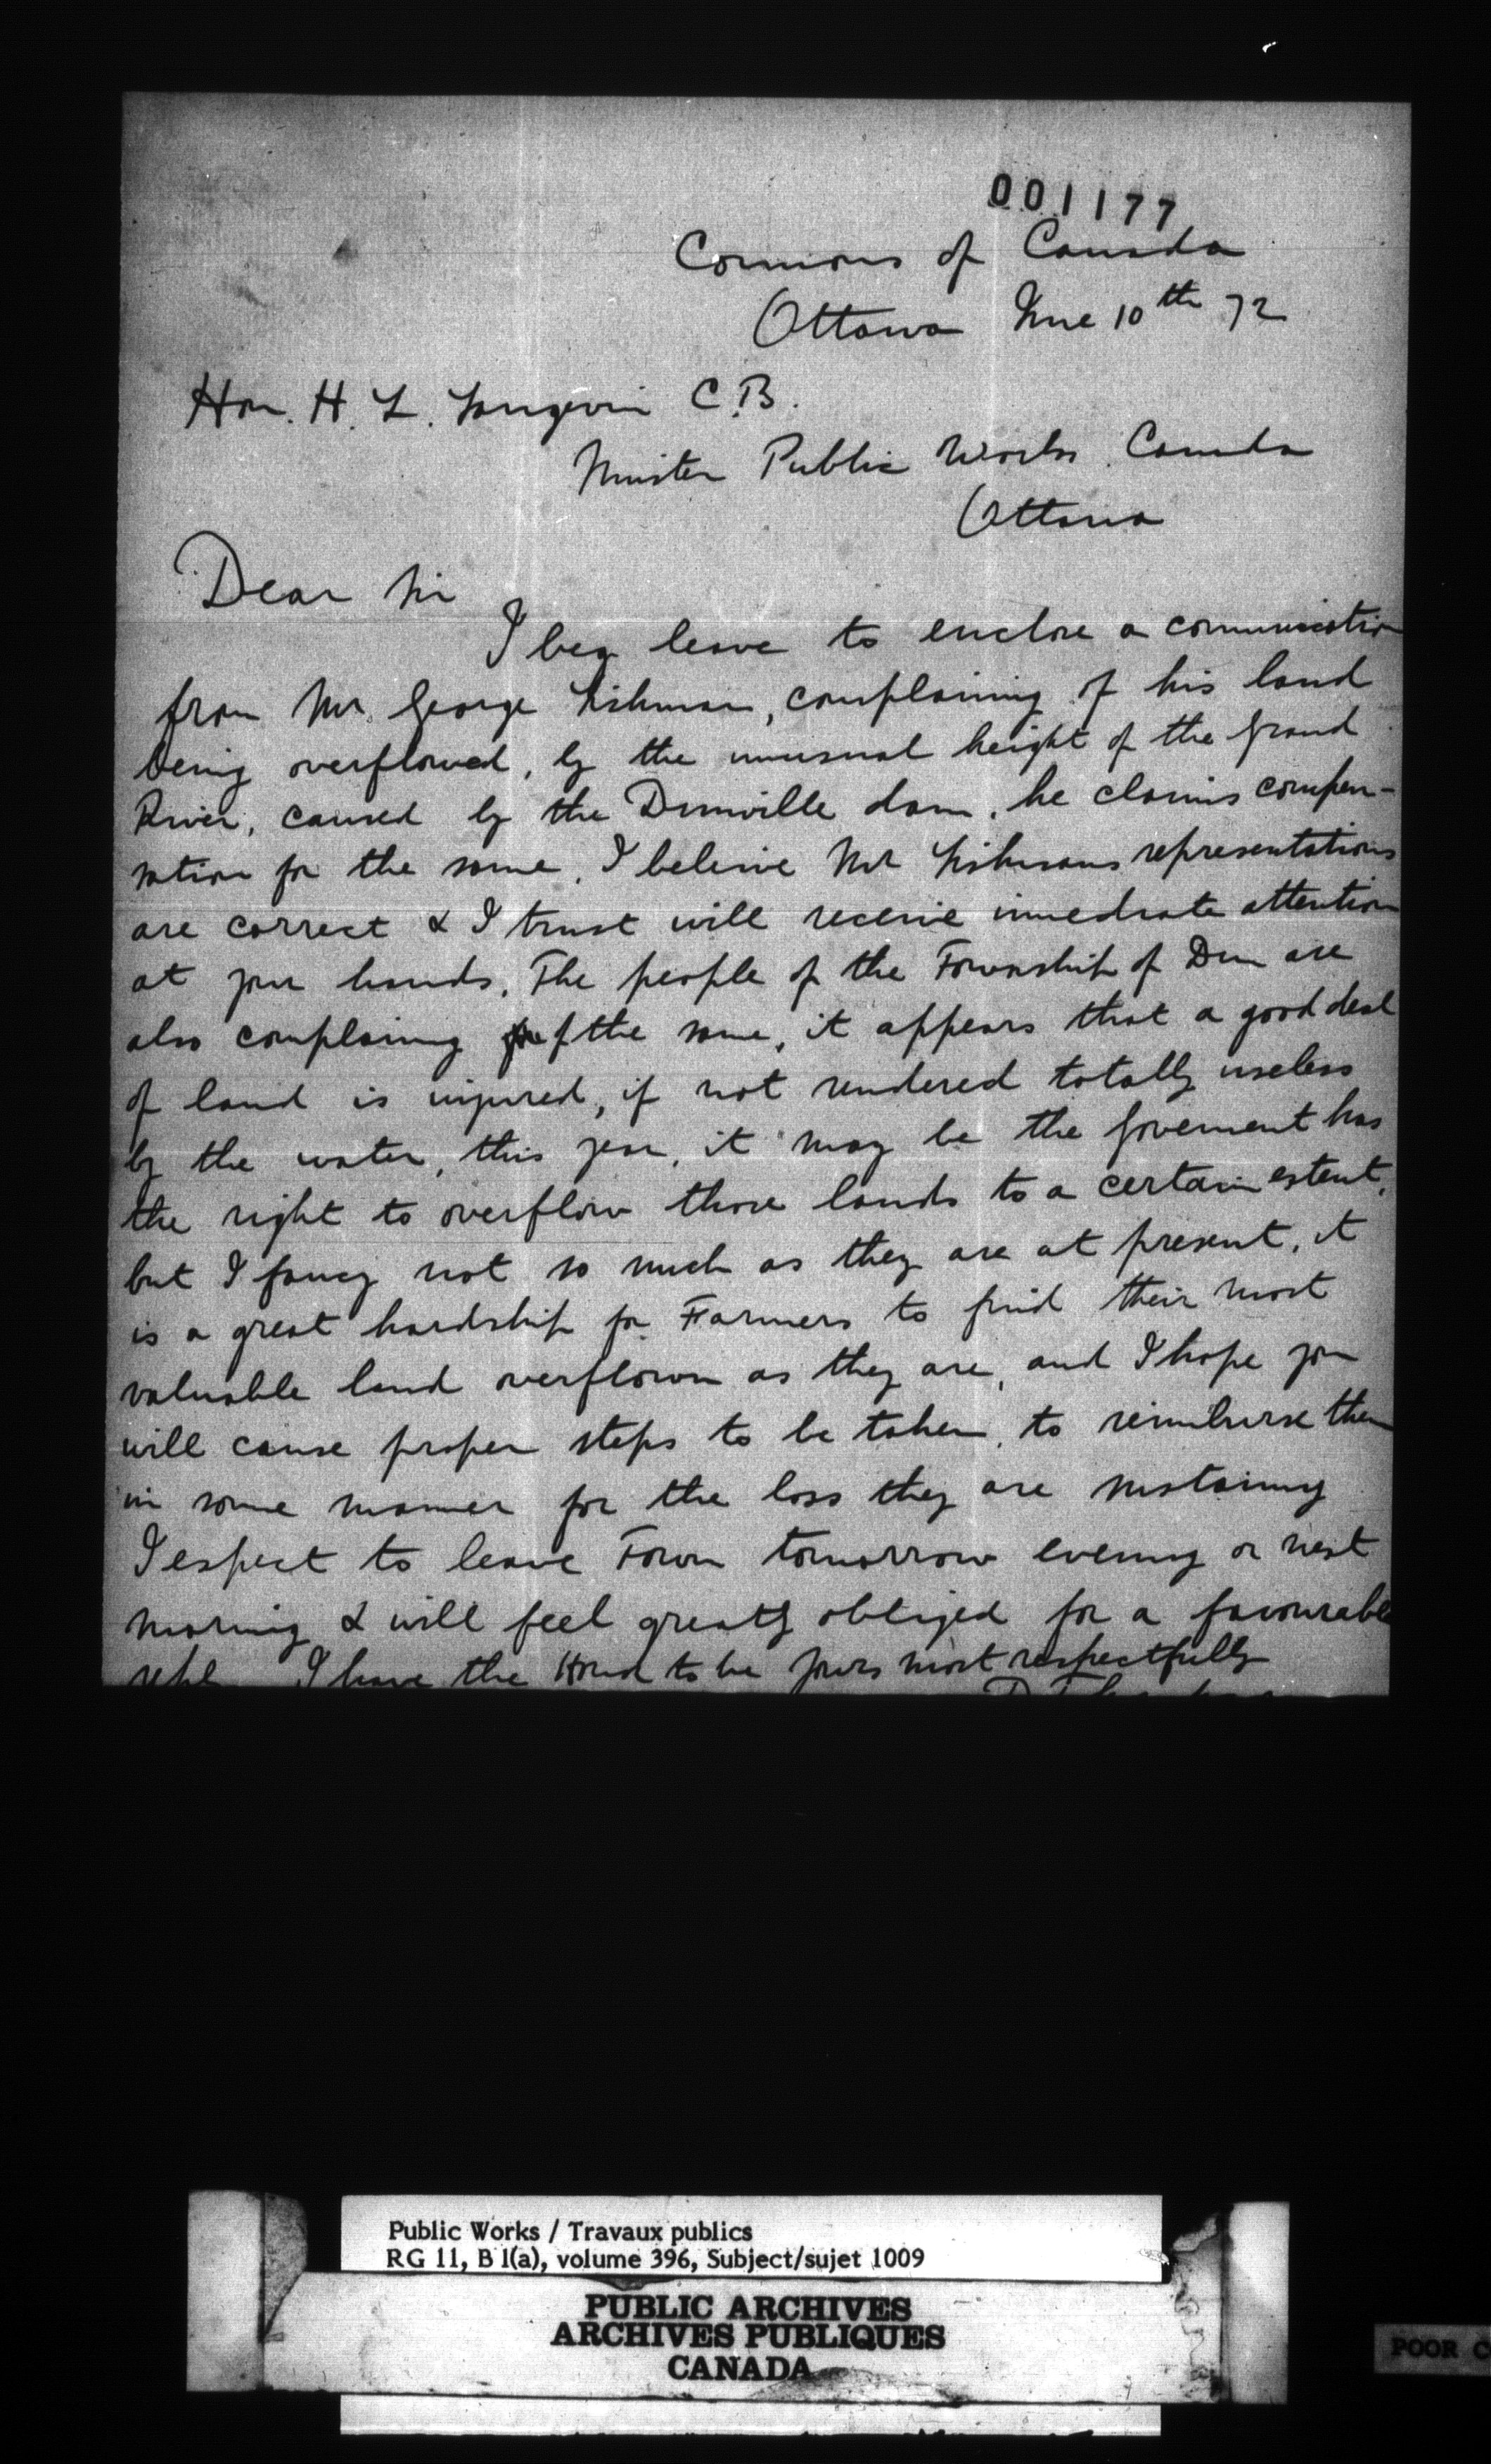 001177
Commons of Canada
Ottawa June 10th 72
Hon. H. L. Langevin C.B.
Minister Public Works Canada
Ottawa
Dear Sir
I beg leave to enclose a communication
from Mr. George complaining of his land
being overflowed, by the unusual height of the Grand
River, caused by the Dunville dam, he claims compen-
sation for the same. I beleive Mr representations
are correct & I trust will receive immediate attention
at your hands. The people of the Township of Dun are
also complaining of the same, it appears that a good deal
of land is injured, if not rendered totally useless
by the water, this year, it may be the Goverment has
the right to overflow those lands to a certain extent,
but I fancy not so much as they are at present, it
is a great hardship for Farmers to find their most
valuable land overflown as they are, and I hope you
will cause proper steps to be taken, to reimburse them
in some manner for the loss they are sustaining
I expect to leave Town tomorrow evening or next
morning & will feel greatly obliged for a favourable
reply I have the Honor to be yours most respectfully
Public Works / Travaux publics
RG 11, B 1(a), volume 396, Subject/sujet 1009
PUBLIC ARCHIVES
ARCHIVES PUBLIQUES
CANADA
POOR